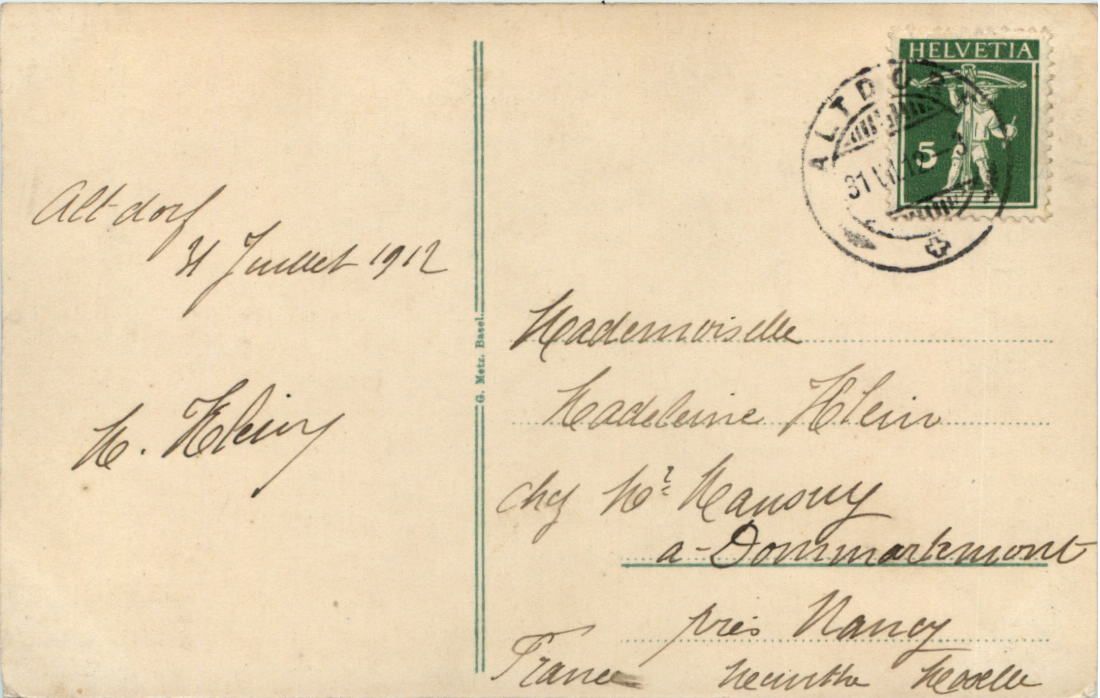 HELVETIA
5
ALTDORF
31.VII.12.–3
Altdorf
31 Juillet 1912
M. Klein
G. Metz, Basel.
Mademoiselle
Madeleine Klein
chez Mr
a Dommartemont
près Nancy
France Meurthe Moselle